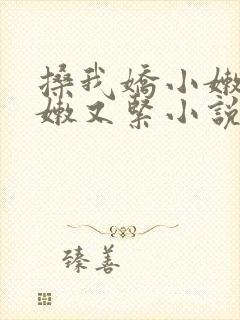 搡我嬌小嫩
嫩又緊小說
臻善